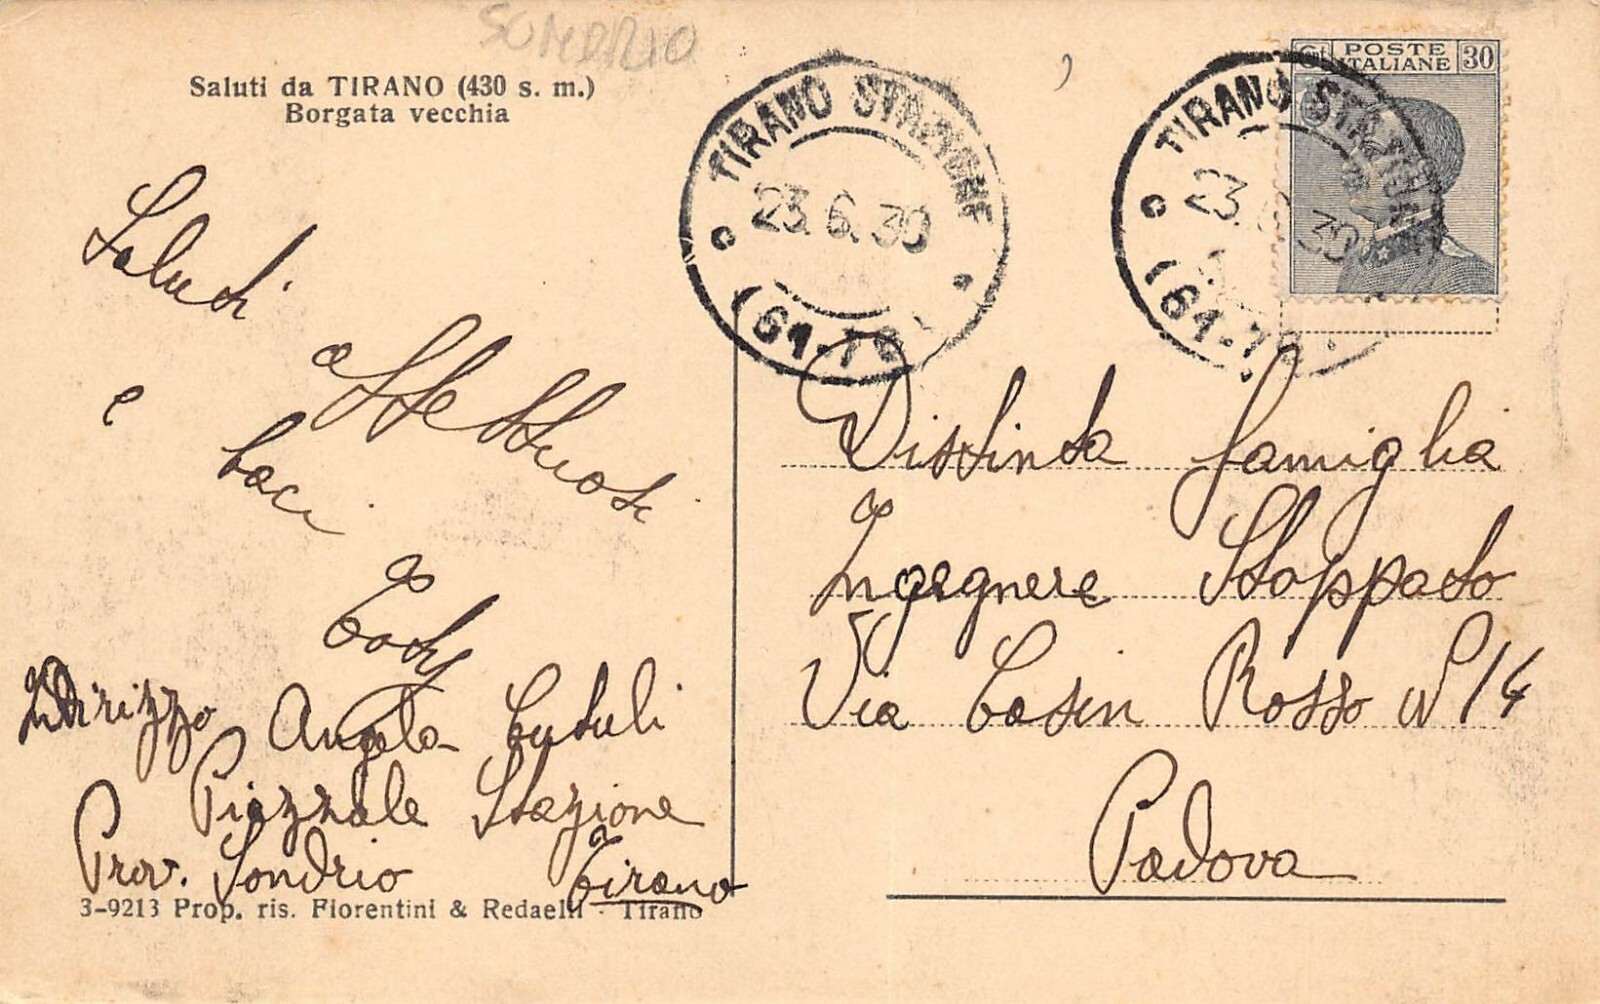 SONDRIO
Saluti da TIRANO (430 s. m.)
Borgata vecchia
Saluti
affettuosi
e baci
Indirizzo Angela
Piazzale Stazione
Prov. Sondrio Tirano
3-9213 Prop. ris. Fiorentini & Redaelli - Tirano
TIRANO STAZIONE
23.6.30
(61-7
TIRANO STAZIONE
23. 6. 30
(61-7
POSTE
ITALIANE
Ct 30
Distinta famiglia
Ingegnere Stoppato
Via Casin Rosso N 14
Padova